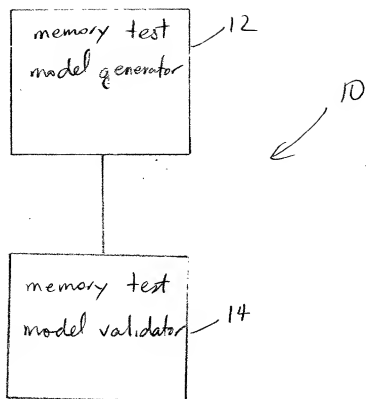 memory test
model generator
12
10
memory test
model validator
14